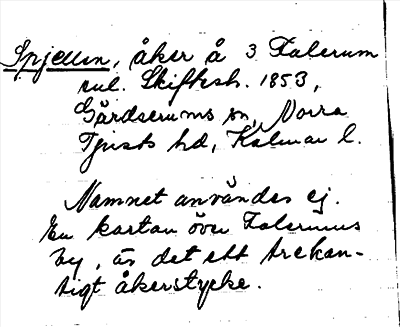 Spjellen, åker å 3 Falerum
enl. Skifteh. 1853,
Gärdserums sn, Norra
Tjusts hd, Kalmar l.
Namnet användes ej.
En kartan över Falerums
by, är det ett trekan-
tigt åkerstycke.